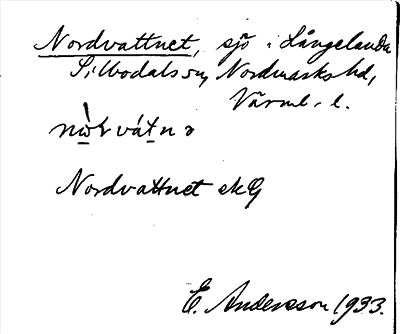 Nordvattnet, sjö i Långelanda
Silbodals sn, Nordmarks hd,
Värml. l.
nὼṛvátnə
Nordvattnet ekG
E. Andersson 1933.